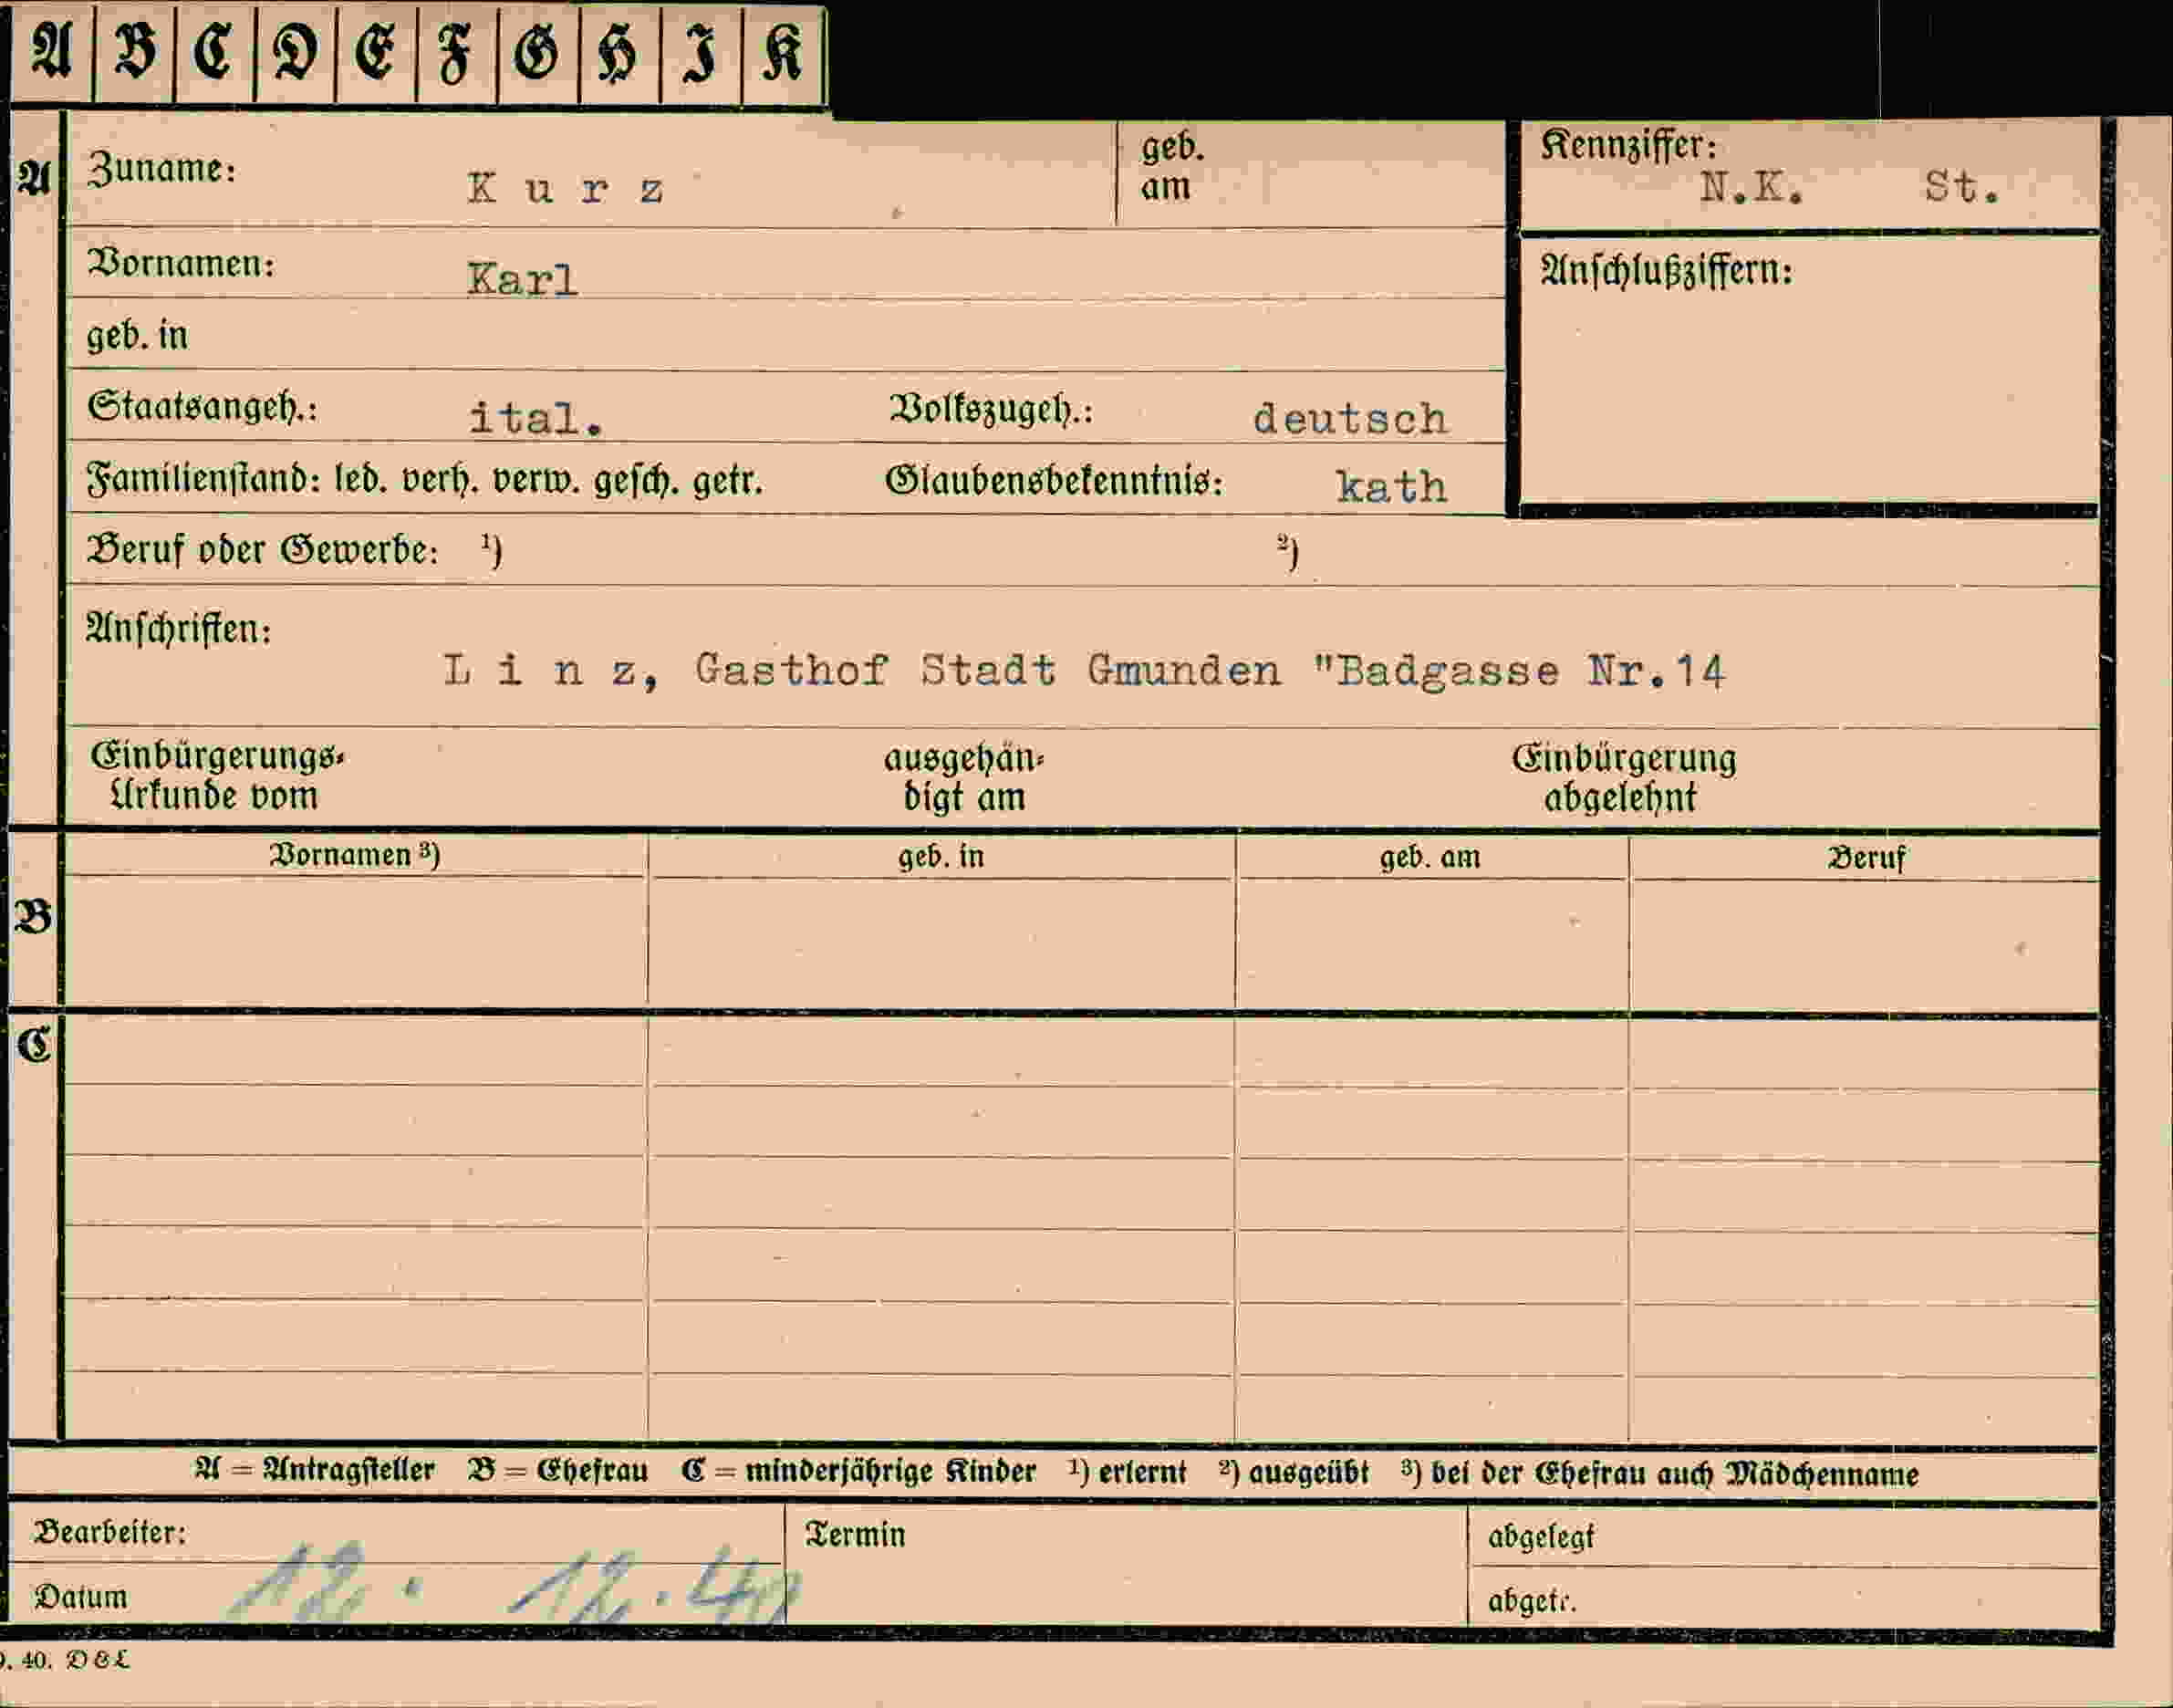 A B C D E F G H I K
A Zuname: K u r z geb. am Kennziffer: N.K. St.
Vornamen: Karl Anschlußziffern:
geb. in
Staatsangeh.: ital. Volkszugeh.: deutsch
Familienstand: led. verh. verw. gesch. getr. Glaubensbekenntnis: kath
Beruf oder Gewerbe: ¹) ²)
Anschriften:
L i n z, Gasthof Stadt Gmunden "Badgasse Nr.14
Einbürgerungs- ausgehän- Einbürgerung
Urkunde vom digt am abgelehnt
Vornamen ³) geb. in geb. am Beruf
B
C
A = Antragsteller B = Ehefrau C = minderjährige Kinder ¹) erlernt ²) ausgeübt ³) bei der Ehefrau auch Mädchenname
Bearbeiter: Termin abgelegt
Datum 12. 12. 40 abgetr.
. 40. D & L